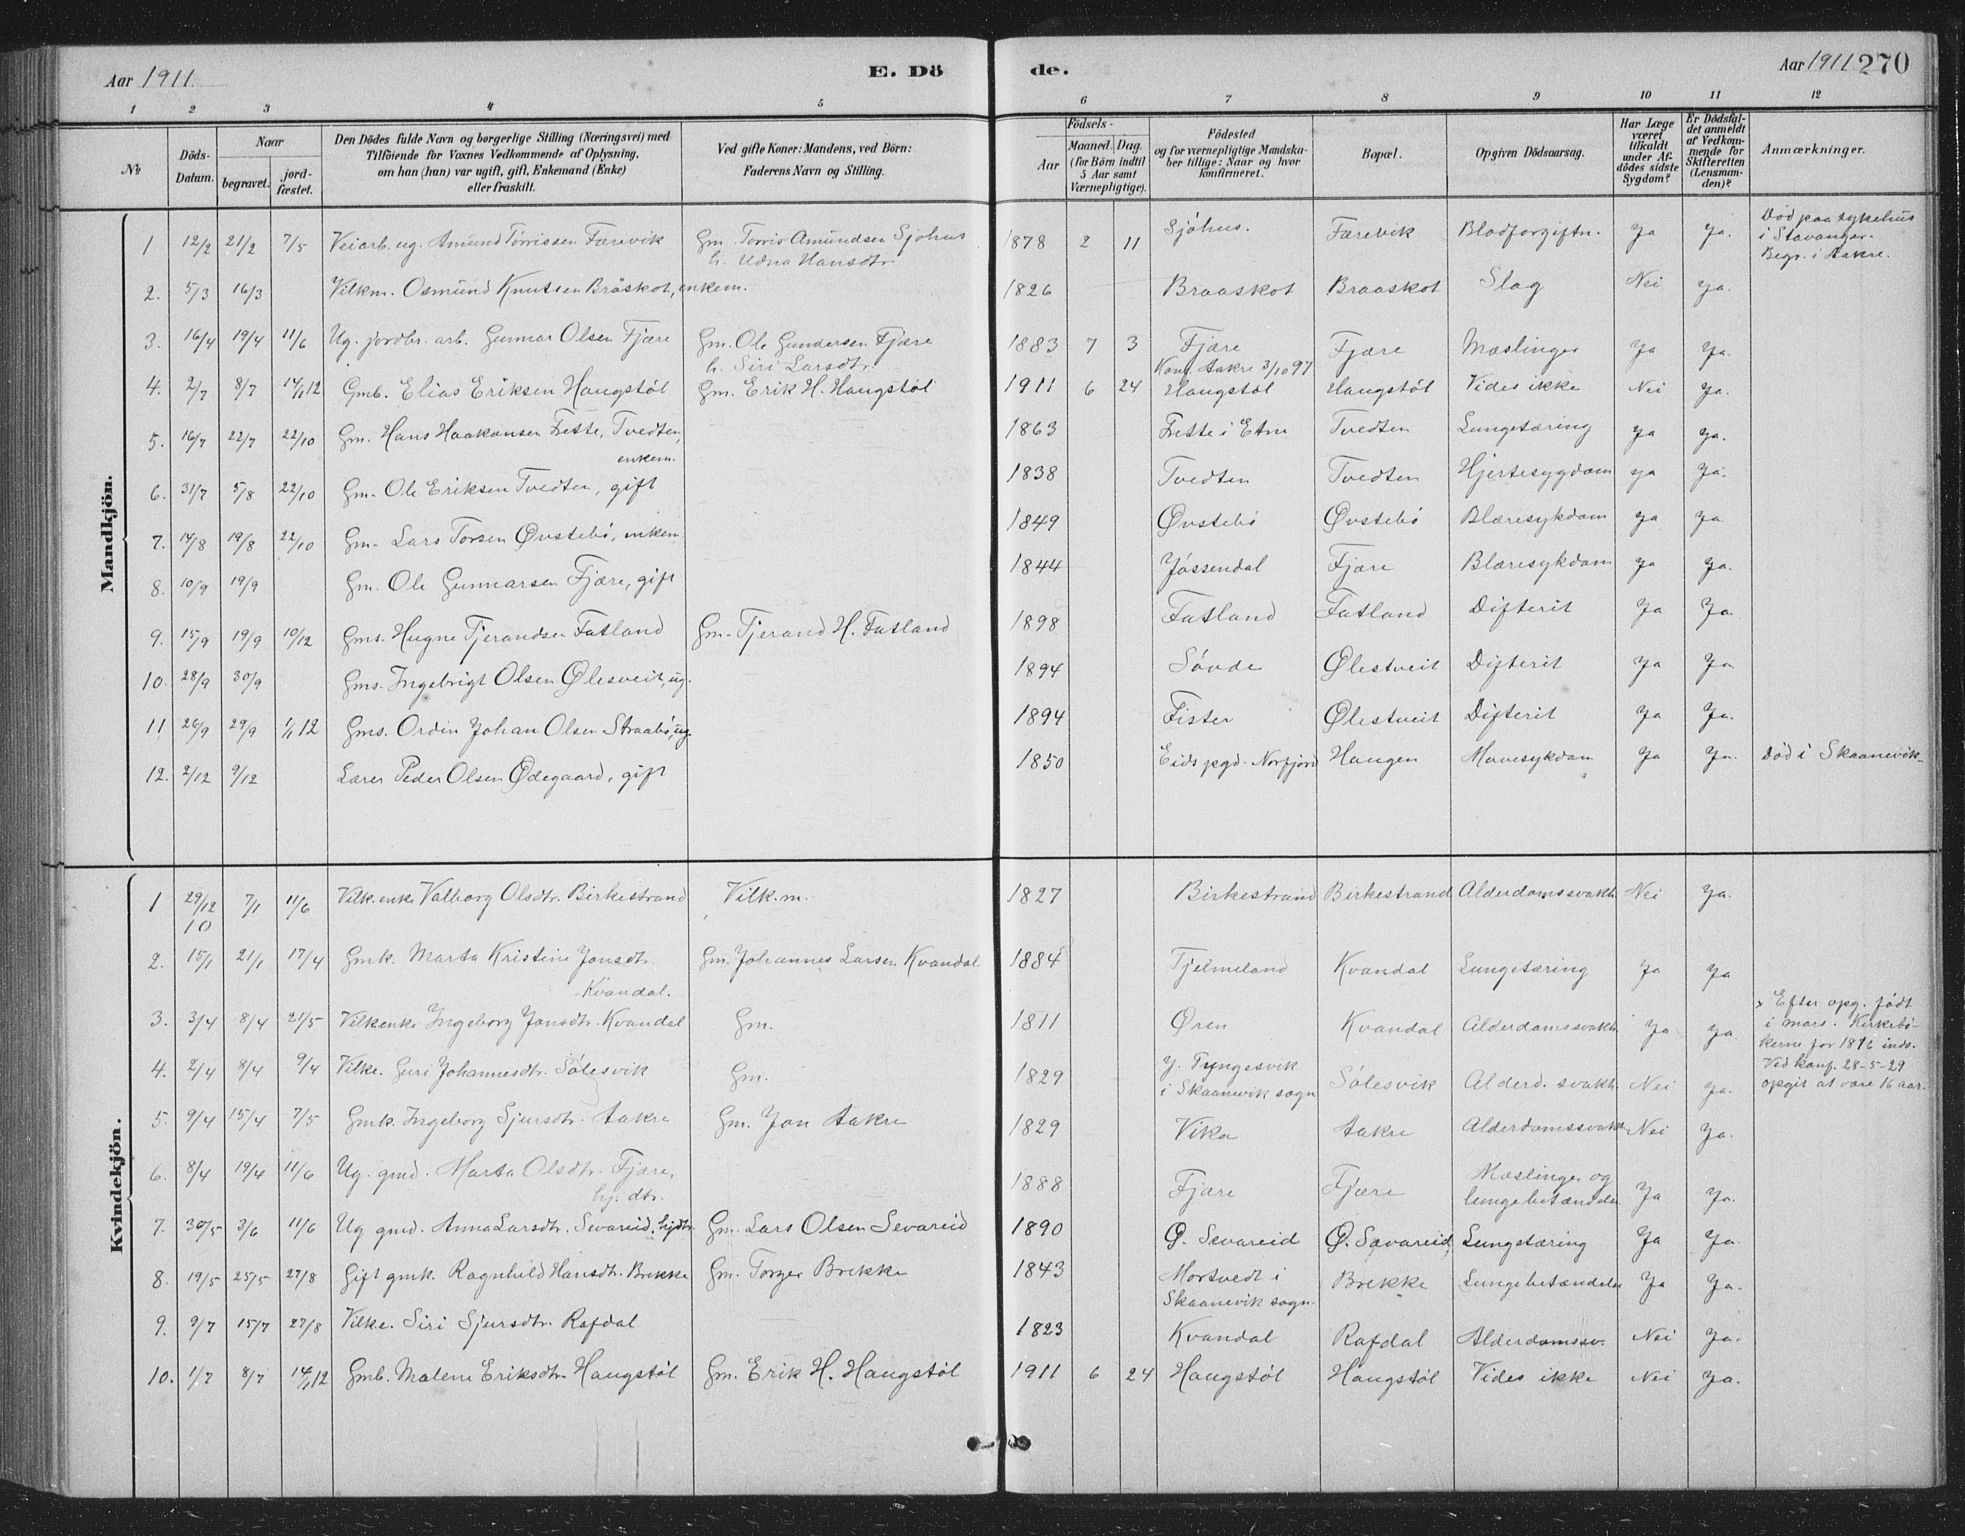 Aar 1911. E. Dö de. Aar 1911 270
1 2 3 4 5 6 7 8 9 10 11 12
№ Döds-Datum. Naar begravet. jord-fæstet. Den Dödes fulde Navn og borgerlige Stilling (Næringsvei) med Tilföiende for Voxnes Vedkommende af Oplysning, om han (hun) var ugift, gift, Enkemand (Enke) eller fraskilt. Ved gifte Koner: Mandens, ved Börn: Faderens Navn og Stilling. Födsels- Aar Maaned. Dag. (for Börn indtil 5 Aar samt Værnepligtige). Födested og for værnepligtige Mandskaber tillige: Naar og hvor konfirmeret. Bopæl. Opgiven Dödsaarsag. Har Læge været tilkaldt under Afdödes sidste Sygdom? Er Dödsfaldet anmeldt af Vedkommende for Skifteretten (Lensmanden)? Anmærkninger.
Mandkjön.
1 12/2 21/2 7/5 Veiarb. ug. Amund Tørrissen Færevik Gm. Torris Amundsen Sjøhus h. Udna Hansdtr. 1878 2 11 Sjøhus. Færevik Blodforgiftn. Ja Ja. Død paa sykehus i Stavanger. Begr. i Aakre.
2. 5/3 16/3 Vilkm. Osmund Knutsen Bråskot, enkem. 1826 Braaskot Braaskot Slag Nei Ja.
3. 16/4 19/4 11/6 Ug. jordbr. arb. Gunnar Olsen Fjære Gm. Ole Gundersen Fjære h. Siri Larsdtr. 1883 7 3 Fjære Konf. Aakre 3/10 97 Fjære Mæslinger Ja Ja.
4. 2/7 8/7 14/1 12 Gmb. Elias Eriksen Haugstøl Gm. Erik H. Haugstøl 1911 6 24 Haugstøl Haugstøl Vides ikke Nei Ja.
5. 16/7 22/7 22/10 Gm. Hans Haakonsen Frette, Tvedten, enkem. 1863 Frette i Etne Tvedten Lungetæring Ja Ja.
6. 31/7 5/8 22/10 Gm. Ole Eriksen Tvedten, gift 1838 Tvedten Tvedten Hjertesygdom Ja Ja.
7. 14/8 19/8 22/10 Gm. Lars Torsen Øvstebø, enkem 1849 Øvstebø Øvstebø Blæresykdom Ja Ja
8. 10/9 19/9 Gm. Ole Gunnarsen Fjære, gift 1844 Jøssendal Fjære Blæresykdom Ja Ja.
9. 15/9 19/9 10/12 Gms. Hugne Tjerandsen Fatland Gm. Tjerand H. Fatland 1898 Fatland Fatland Difterit Ja Ja.
10. 28/9 30/9 Gms. Ingebrigt Olsen Ølesveit, ug. 1894 Søvde Ølestveit Difterit Ja Ja
11 26/9 29/9 1/1 12 Gms. Ordin Johan Olsen Straabø, ug 1894 Fister Ølestveit Difterit Ja Ja.
12. 2/12 9/12 Lærer Peder Olsen Ødegaard, gift 1850 Eids pgd. Norfjord Haugen Mavesykdom Ja Ja. Død i Skaanevik.
Kvindekjön.
1 29/12 10 7/1 11/6 Vilk.enke Valborg Olsdtr. Birkestrand Vilk.m. 1827 Birkestrand Birkestrand Alderdomssvakh. Nei Ja.
2. 15/1 21/1 17/4 Gmk. Marta Kristine Jonsdtr. Kvandal. Gm. Johannes Larsen Kvandal 1884 Tjelmeland Kvandal Lungetæring Ja Ja
3. 3/4 8/4 21/5 Vilkenke Ingeborg Jonsdtr. Kvandal Gm. 1811 Øren Kvandal Alderdomssvakh. Ja Ja x Efter opg. født i mars. Kirkebøkerne for 1816 inds. Ved konf. 28-5-29 opgit at være 16 aar.
4. 2/4 8/4 9/4 Vilke. Guri Johannesdtr. Sølesvik Gm. 1829 Y. Tungesvik i Skaanevik sogn Sølesvik Alderd. svakh. Nei Ja.
5. 9/4 15/4 7/5 Gmk. Ingeborg Sjursdtr. Aakre Gm. Jon Aakre 1829 Vika Aakre Alderdomssvakh. Nei Ja.
6. 8/4 19/4 11/6 Ug. gmd. Marta Olsdtr. Fjære, hj. dtr. 1888 Fjære Fjære Mæslinger og lungebetændelse Ja Ja.
7. 30/5 3/6 11/6 Ug gmd. Anna Larsdtr. Sevareid, hjdtr. Gm. Lars Olsen Sevareid 1890 Ø. Sævareid Ø. Sævareid Lungetæring Ja Ja.
8. 19/5 25/5 27/8 Gift gmk. Ragnhild Hansdtr. Brekke Gm. Torger Brekke 1843 Mortvedt i Skaanevik sogn. Brekke Lungebetændelse Ja Ja.
9. 9/7 15/7 27/8 Vilke. Siri Sjursdtr. Rafdal 1823 Kvandal Rafdal Alderdomssv. Nei Ja.
10. 1/7 8/7 14/1 12 Gmb. Malene Eriksdtr. Haugstøl Gm. Erik H. Haugstøl 1911 6 24 Haugstøl Haugstøl Vides ikke Nei Ja.